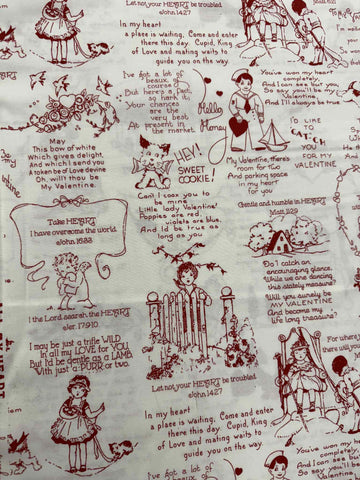 Let not your HEART be troubled
John 14:27
In my heart
a place is waiting. Come and enter
there this day. Cupid, King
of Love and mating waits to
guide you on the way.
I've got a lot of
beaux of
course
But here's a fact,
so hark it,
Your chances
are the
very best
At present in
the market
Hello
Honey
You've won my heart
completely,
And I can see fair you,
So say you'll be my
Valentine,
And I'll always be true
I'D LIKE
TO
EAT
YOU
FOR MY
VALENTINE
May
This bow of white
Which gives delight,
And which I send you
A token be of Love devine
Oh, will't thou be
My Valentine.
HEY!
SWEET
COOKIE!
My Valentine, there's
room for two
And parking space
in my heart
for you
Can't I coax you to
be mine
Little lady Valentine?
Poppies are red,
violets are blue,
And I'd be true as
long as you
Gentle and humble in HEART
Matt 11:29
Take HEART
I have overcome the world.
John 16:33
Do I catch an
encouraging glance,
While we are dancing
this stately measure
Will you surely be
MY VALENTINE
And become my
life long treasure?
I the Lord search the HEART
Jer. 17:9,10
I may be just a trifle WILD
In all my LOVE for YOU,
But I'd be gentle as a LAMB
With just a PURR or two.
Let not your HEART be troubled
John 14:27
For where
there will
In my heart
a place is waiting. Come and enter
there this day. Cupid, King
of Love and mating waits to
guide you on the way.
I've got a lot of
beaux of
You've won my heart
completely,
And I can see fair you
So say you'll be my